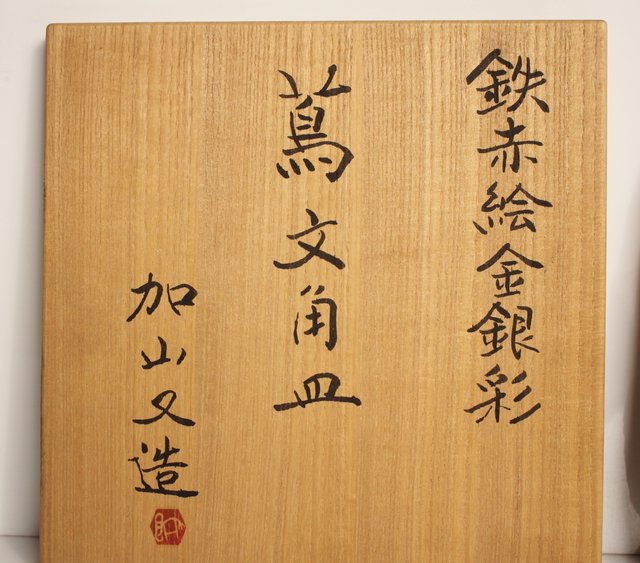 鉄赤絵金銀彩
蔦文角皿
加山又造